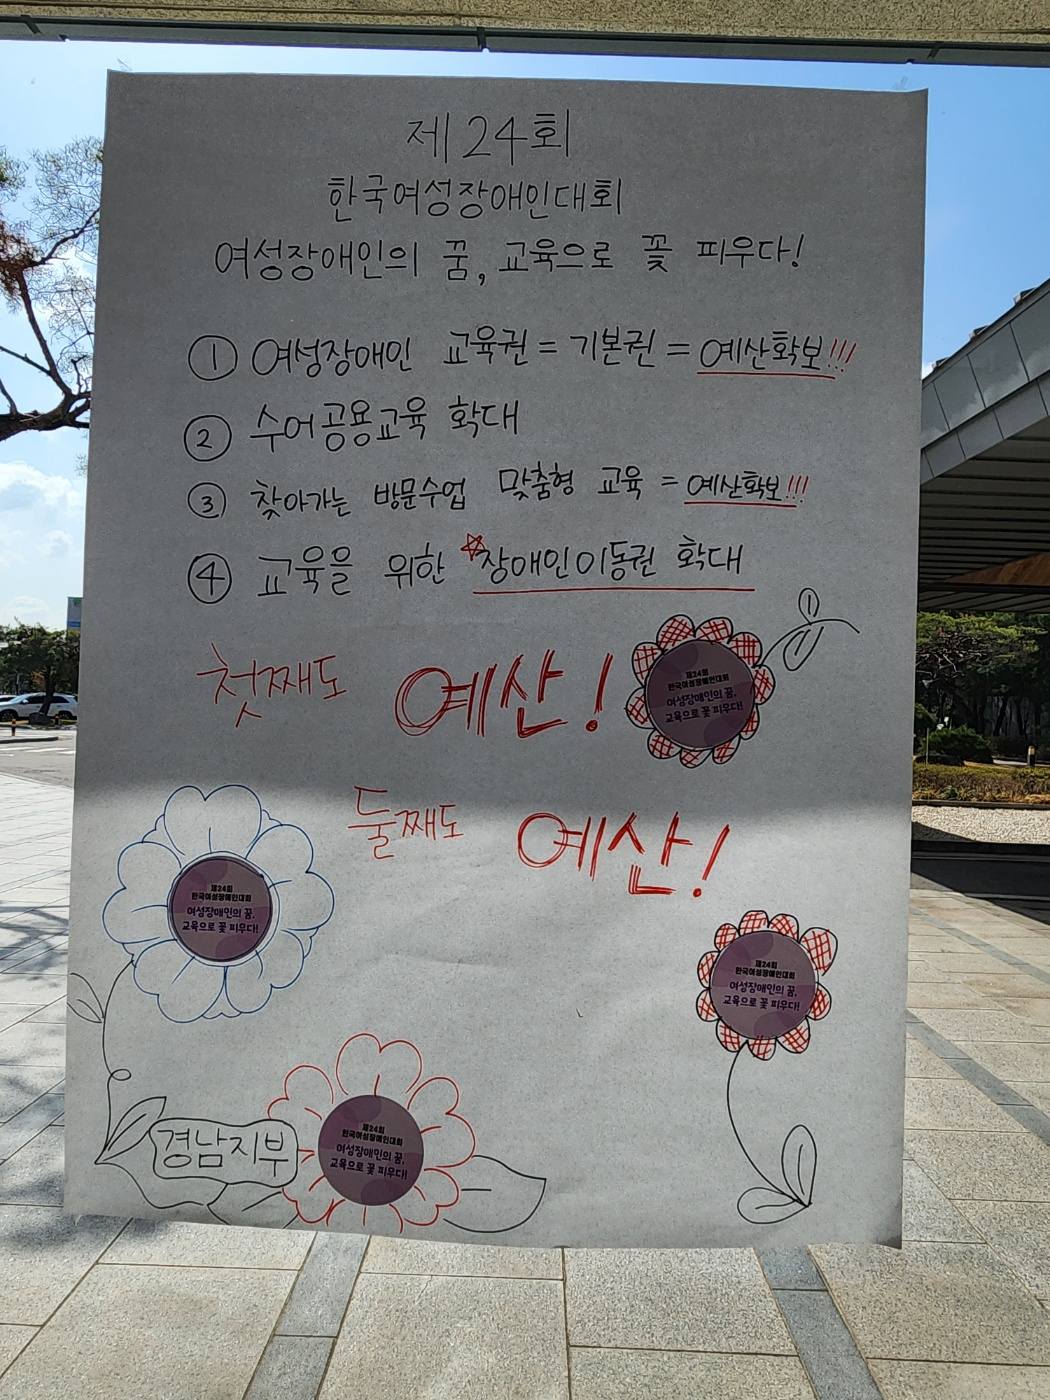 제24회
한국여성장애인대회
여성장애인의 꿈, 교육으로 꽃 피우다!
① 여성장애인 교육권 = 기본권 = 예산확보!!!
② 수어공용교육 확대
③ 찾아가는 방문수업 맞춤형 교육 = 예산확보!!!
④ 교육을 위한 ☆장애인이동권 확대
첫째도 예산!
제24회
한국여성장애인대회
여성장애인의 꿈,
교육으로 꽃 피우다!
둘째도 예산!
제24회
한국여성장애인대회
여성장애인의 꿈,
교육으로 꽃 피우다!
제24회
한국여성장애인대회
여성장애인의 꿈,
교육으로 꽃 피우다!
경남지부
제24회
한국여성장애인대회
여성장애인의 꿈,
교육으로 꽃 피우다!